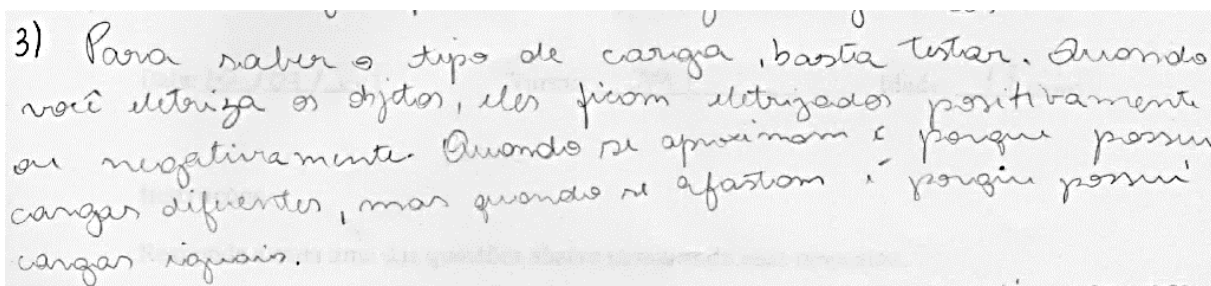 3) Para saber o tipo de carga, basta testar. Quando
você eletriza os objetos, eles ficam eletrizados positivamente
ou negativamente. Quando se aproximam é porque possui
cargas diferentes, mas quando se afastam é porque possui
cargas iguais.